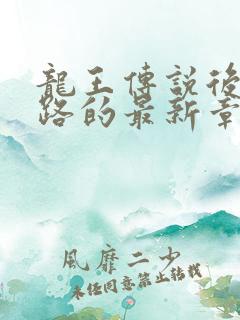 龍王傳說後
路的最新章
風靡二少
未經同意禁止轉載